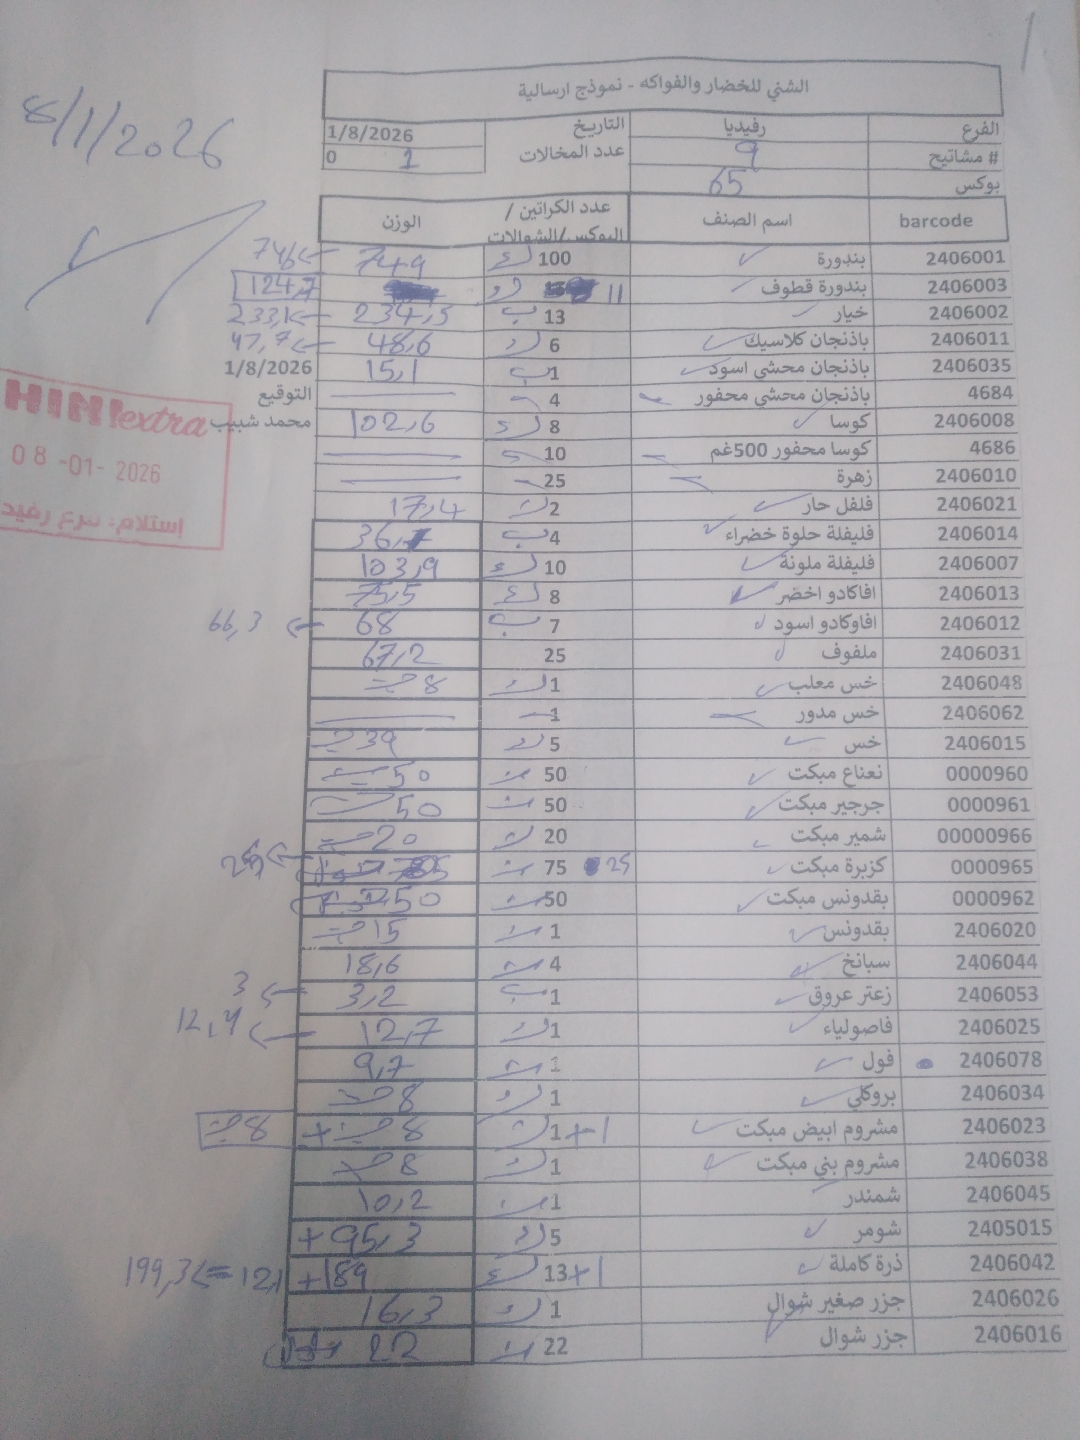 1
الشني للخضار والفواكه - نموذج ارسالية
8/1/2026
الفرع رفيديا التاريخ 1/8/2026
# مشاتيح 9 عدد المخالات 1 0
بوكس 65
barcode اسم الصنف عدد الكراتين / البوكس/الشوالات الوزن
2406001 بندورة 100 749 746
2406003 بندورة قطوف 11 124,7
2406002 خيار 13 234,5 233,1
2406011 باذنجان كلاسيك 6 48,6 47,7
2406035 باذنجان محشي اسود 1 15,1 1/8/2026
4684 باذنجان محشي محفور 4 التوقيع
2406008 كوسا 8 102,6 محمد شبيب
4686 كوسا محفور 500غم 10
2406010 زهرة 25
HINI extra
08-01-2026
إستلام: فرع رفيد
2406021 فلفل حار 2 17,4
2406014 فليفلة حلوة خضراء 4 36,7
2406007 فليفلة ملونة 10 103,9
2406013 افاكادو اخضر 8 75,5
2406012 افاوكادو اسود 7 68 66,3
2406031 ملفوف 25 67,2
2406048 خس معلب 1 8
2406062 خس مدور 1
2406015 خس 5 39
0000960 نعناع مبكت 50 50
0000961 جرجير مبكت 50 50
00000966 شمير مبكت 20 20
0000965 كزبرة مبكت 25 75
0000962 بقدونس مبكت 50 50
2406020 بقدونس 1 15
2406044 سبانخ 4 18,6
2406053 زعتر عروق 1 3,2 3
2406025 فاصولياء 1 12,7 12,4
2406078 فول 1 9,7
2406034 بروكلي 1 8
2406023 مشروم ابيض مبكت 1+1 8 + 8
2406038 مشروم بني مبكت 1 8
2406045 شمندر 1 10,2
2405015 شومر 5 95,3 +
2406042 ذرة كاملة 13+1 189 + 12,1 = 199,3
2406026 جزر صغير شوال 1 16,3
2406016 جزر شوال 22 22